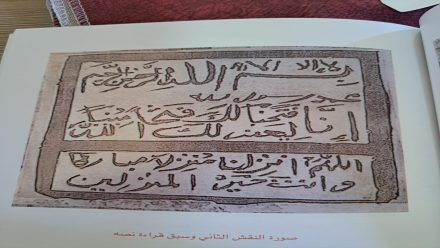 لا اله الا الله
بسم الله الرحمن الرحيم
محمد رسول الله
إنا فتحنا لك فتحا مبينا
ليغفر لك الله
اللهم انزلنا منزلا مباركا
وانت خير المنزلين
صورة النقش الثاني وسبق قراءة نصه